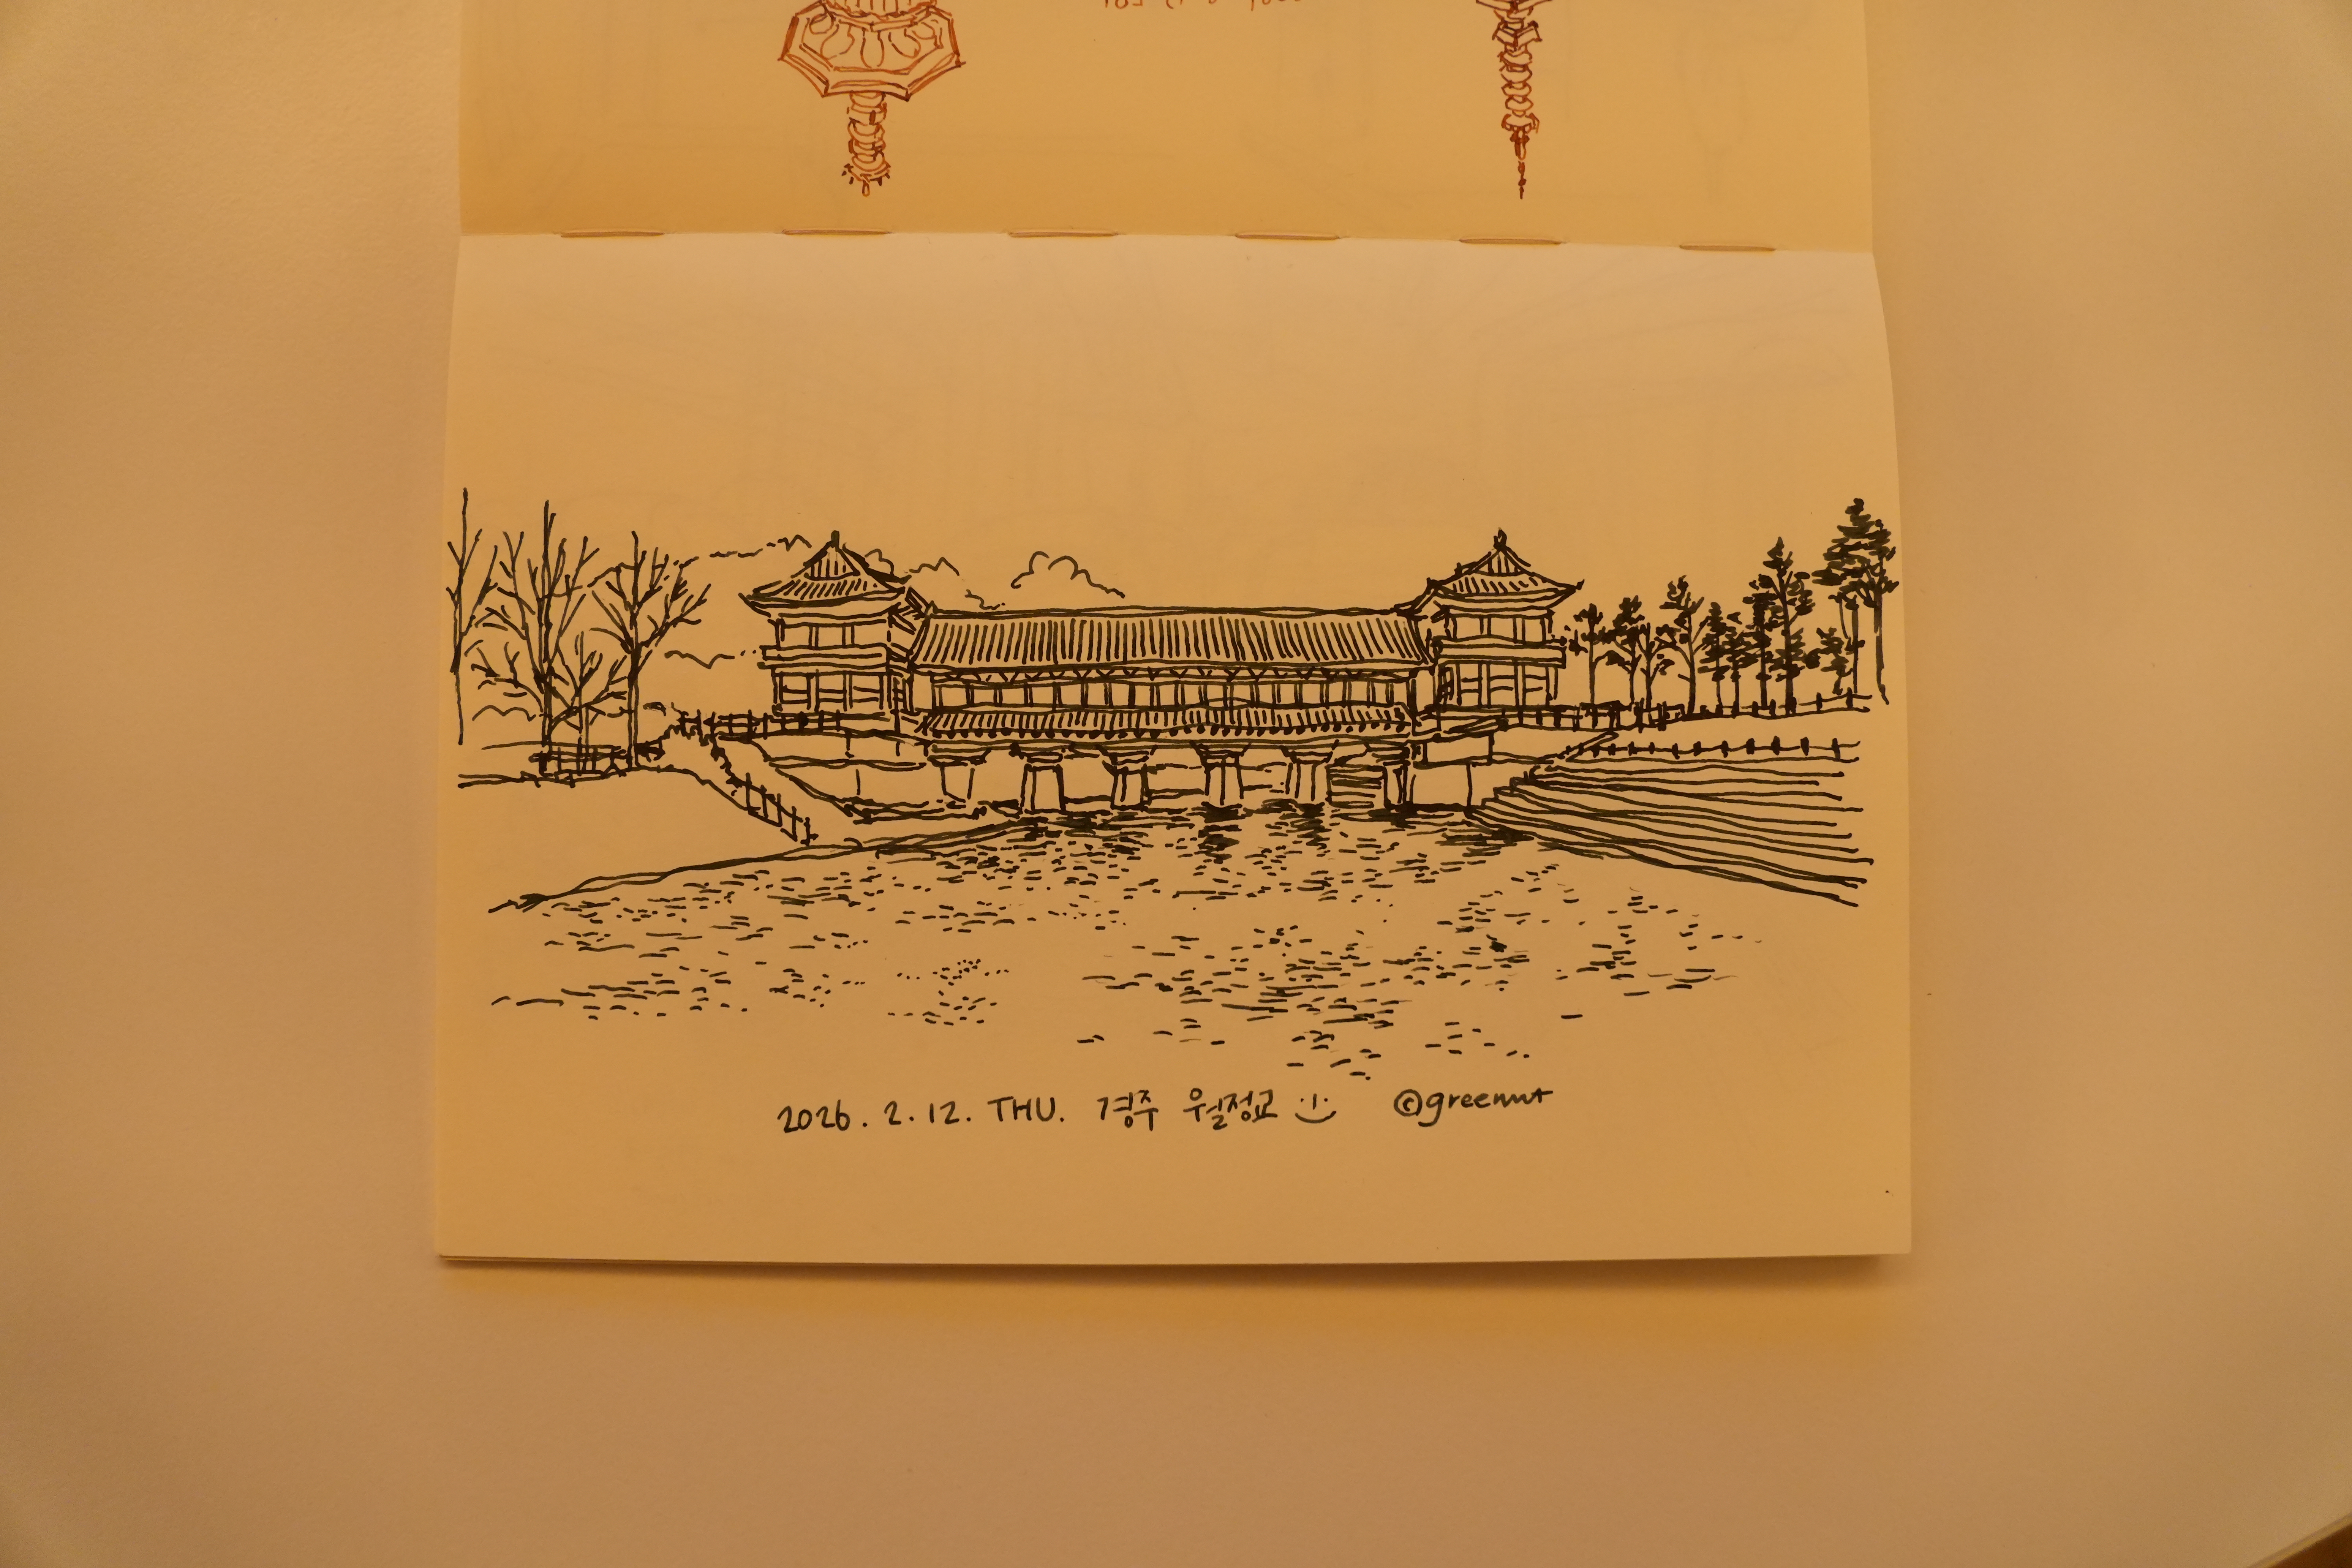 2026. 2. 12. THU. 경주 월정교 ©greennut